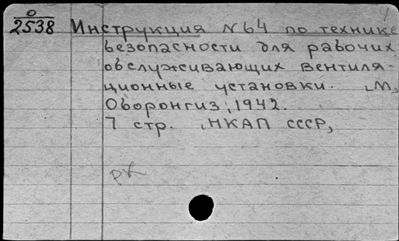 О
2538
Инструкция №64 по технике
безопасности для рабочих,
обслуживающих вентиля-
ционные установки. М,
Оборонгиз, 1942.
7 стр. НКАП СССР,
рк